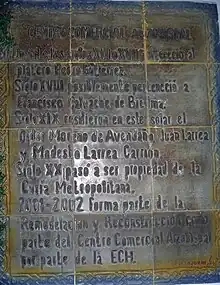 CENTRO COMERCIAL ARZOBISPAL
Siglo XVI
platero Pedro Gutiérrez.
Siglo XVIII posiblemente perteneció a
Francisco Salvache de Bielma.
Siglo XIX residieron en este solar el
Oidor Moreno de Avendaño, Juan Larrea
y Modesto Larrea Carrión.
Siglo XX pasó a ser propiedad de la
Curia Metropolitana.
2001-2002 forma parte de la
Remodelación y Reconstrucción como
parte del Centro Comercial Arzobispal
por parte de la ECH.